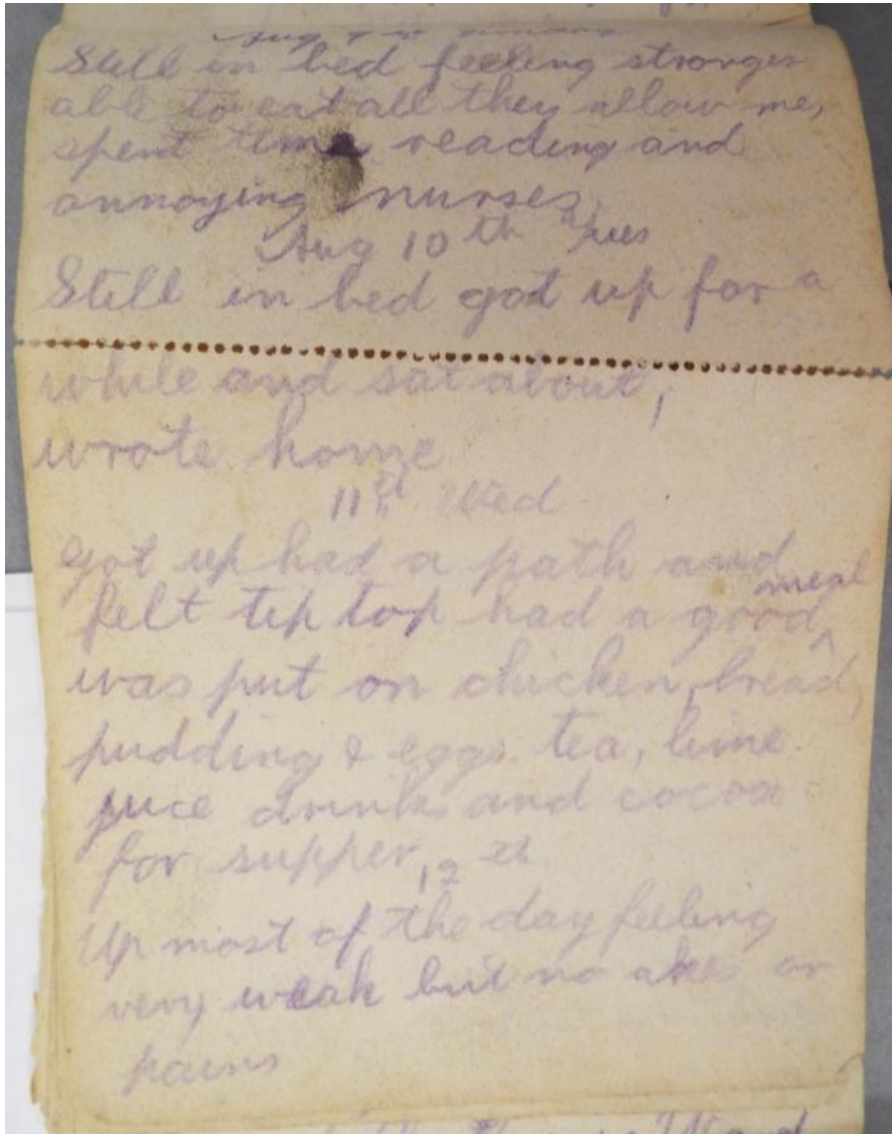 Aug 9th
Still in bed feeling stronger
able to eat all they allow me,
spent time reading and
annoying nurses.
Aug 10th Tues
Still in bed got up for a
while and sat about,
wrote home
11th Wed
Got up had a bath and
felt tip top had a good meal
was put on chicken, bread,
pudding & eggs tea, lime
juce drinks and cocoa
for supper
12th
Up most of the day feeling
very weak but no akes or
pains